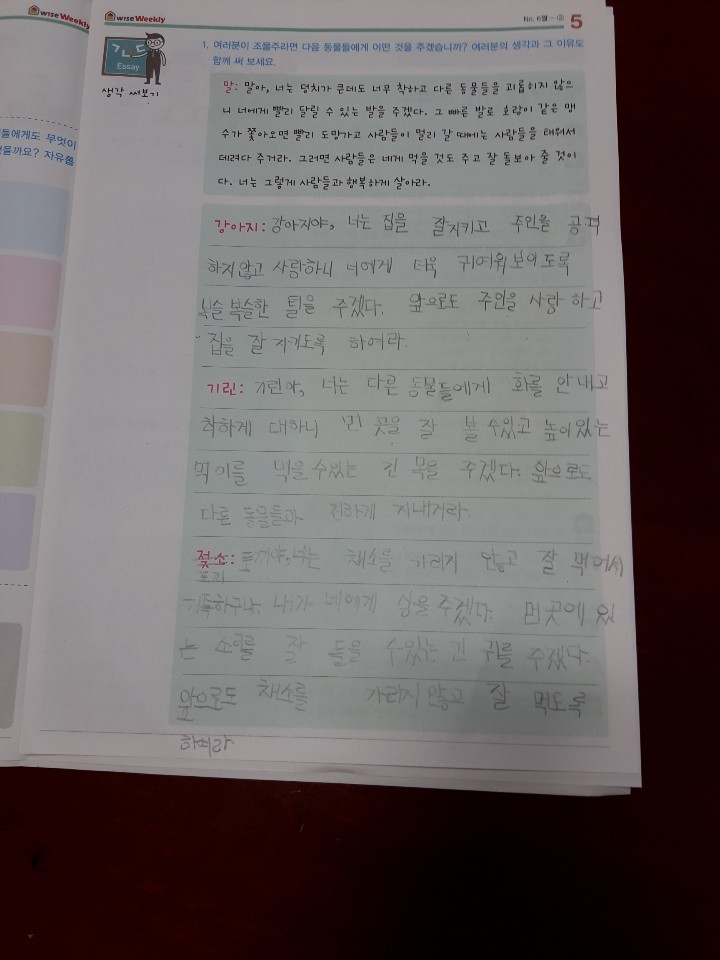 wise Weekly
wise Weekly
No. 6월 - ② 5
ㄱㄴㄷ
Essay
생각 써보기
1. 여러분이 조물주라면 다음 동물들에게 어떤 것을 주겠습니까? 여러분의 생각과 그 이유도
함께 써 보세요.
말: 말아, 너는 덩치가 큰데도 너무 착하고 다른 동물들을 괴롭히지 않으
니 너에게 빨리 달릴 수 있는 발을 주겠다. 그 빠른 발로 호랑이 같은 맹
수가 쫓아오면 빨리 도망가고 사람들이 멀리 갈 때에는 사람들을 태워서
데려다 주거라. 그러면 사람들은 네게 먹을 것도 주고 잘 돌보아 줄 것이
다. 너는 그렇게 사람들과 행복하게 살아라.
들에게도 무엇이
을까요? 자유롭
강아지: 강아지야, 너는 집을 잘지키고 주인을 공격
하지않고 사랑하니 너에게 더욱 귀여워보이도록
복슬복슬한 털을 주겠다. 앞으로도 주인을 사랑하고
집을 잘 지키도록 하여라.
기린: 기린아, 너는 다른 동물들에게 화를 안내고
착하게 대하니 먼 곳을 잘 볼 수있고 높이있는
먹이를 먹을수있는 긴 목을 주겠다. 앞으로도
다른 동물들과 친하게 지내거라.
젖소: 토끼야, 너는 채소를 가리지 않고 잘 먹어서
토끼
기특하구나. 내가 네에게 상을 주겠다. 먼곳에 있
는 소리를 잘 들을 수있는 긴 귀를 주겠다.
앞으로도 채소를 가리지않고 잘 먹도록
하여라